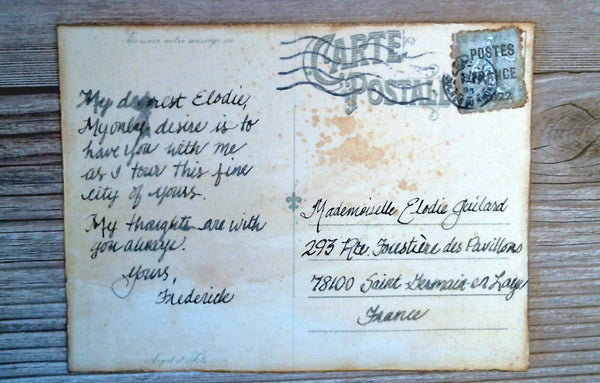 CARTE
POSTALE
POSTES
FRANCE
My dearest Elodie,
My only desire is to
have you with me
as I tour this fine
city of yours.
My thoughts are with
you always.
Yours,
Frederick
Mademoiselle Elodie Gaillard
293 Rte. Forestière des Pavillons
78100 Saint Germain en Laye
France